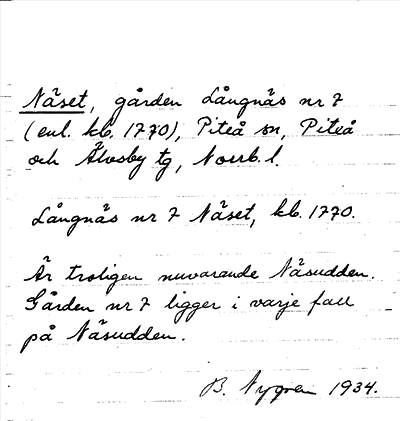 Näset, gården Långnäs nr 7
(enl. kb. 1770), Piteå sn, Piteå
och Älvsby tg, Norrb. l.
Långnäs nr 7 Näset, kb. 1770.
Är troligen nuvarande Näsudden.
Gården nr 7 ligger i varje fall
på Näsudden.
B. Nygren 1934.